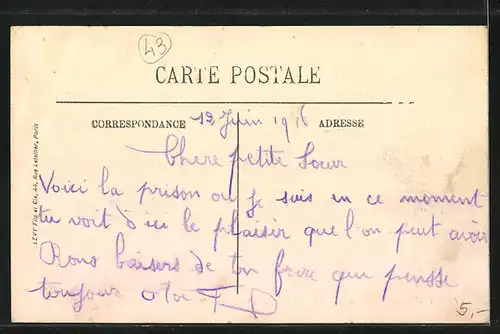 43
CARTE POSTALE
CORRESPONDANCE
ADRESSE
LEVY Fils et Cie, 44, Rue Letellier, Paris
12 Juin 1916
Chere petite Sœur
Voici la prison ou je suis en ce moment
tu voit d'ici le plaisir que l'on peut avoir
Bons baisers de ton frere qui pensse
toujour a toi
5,-